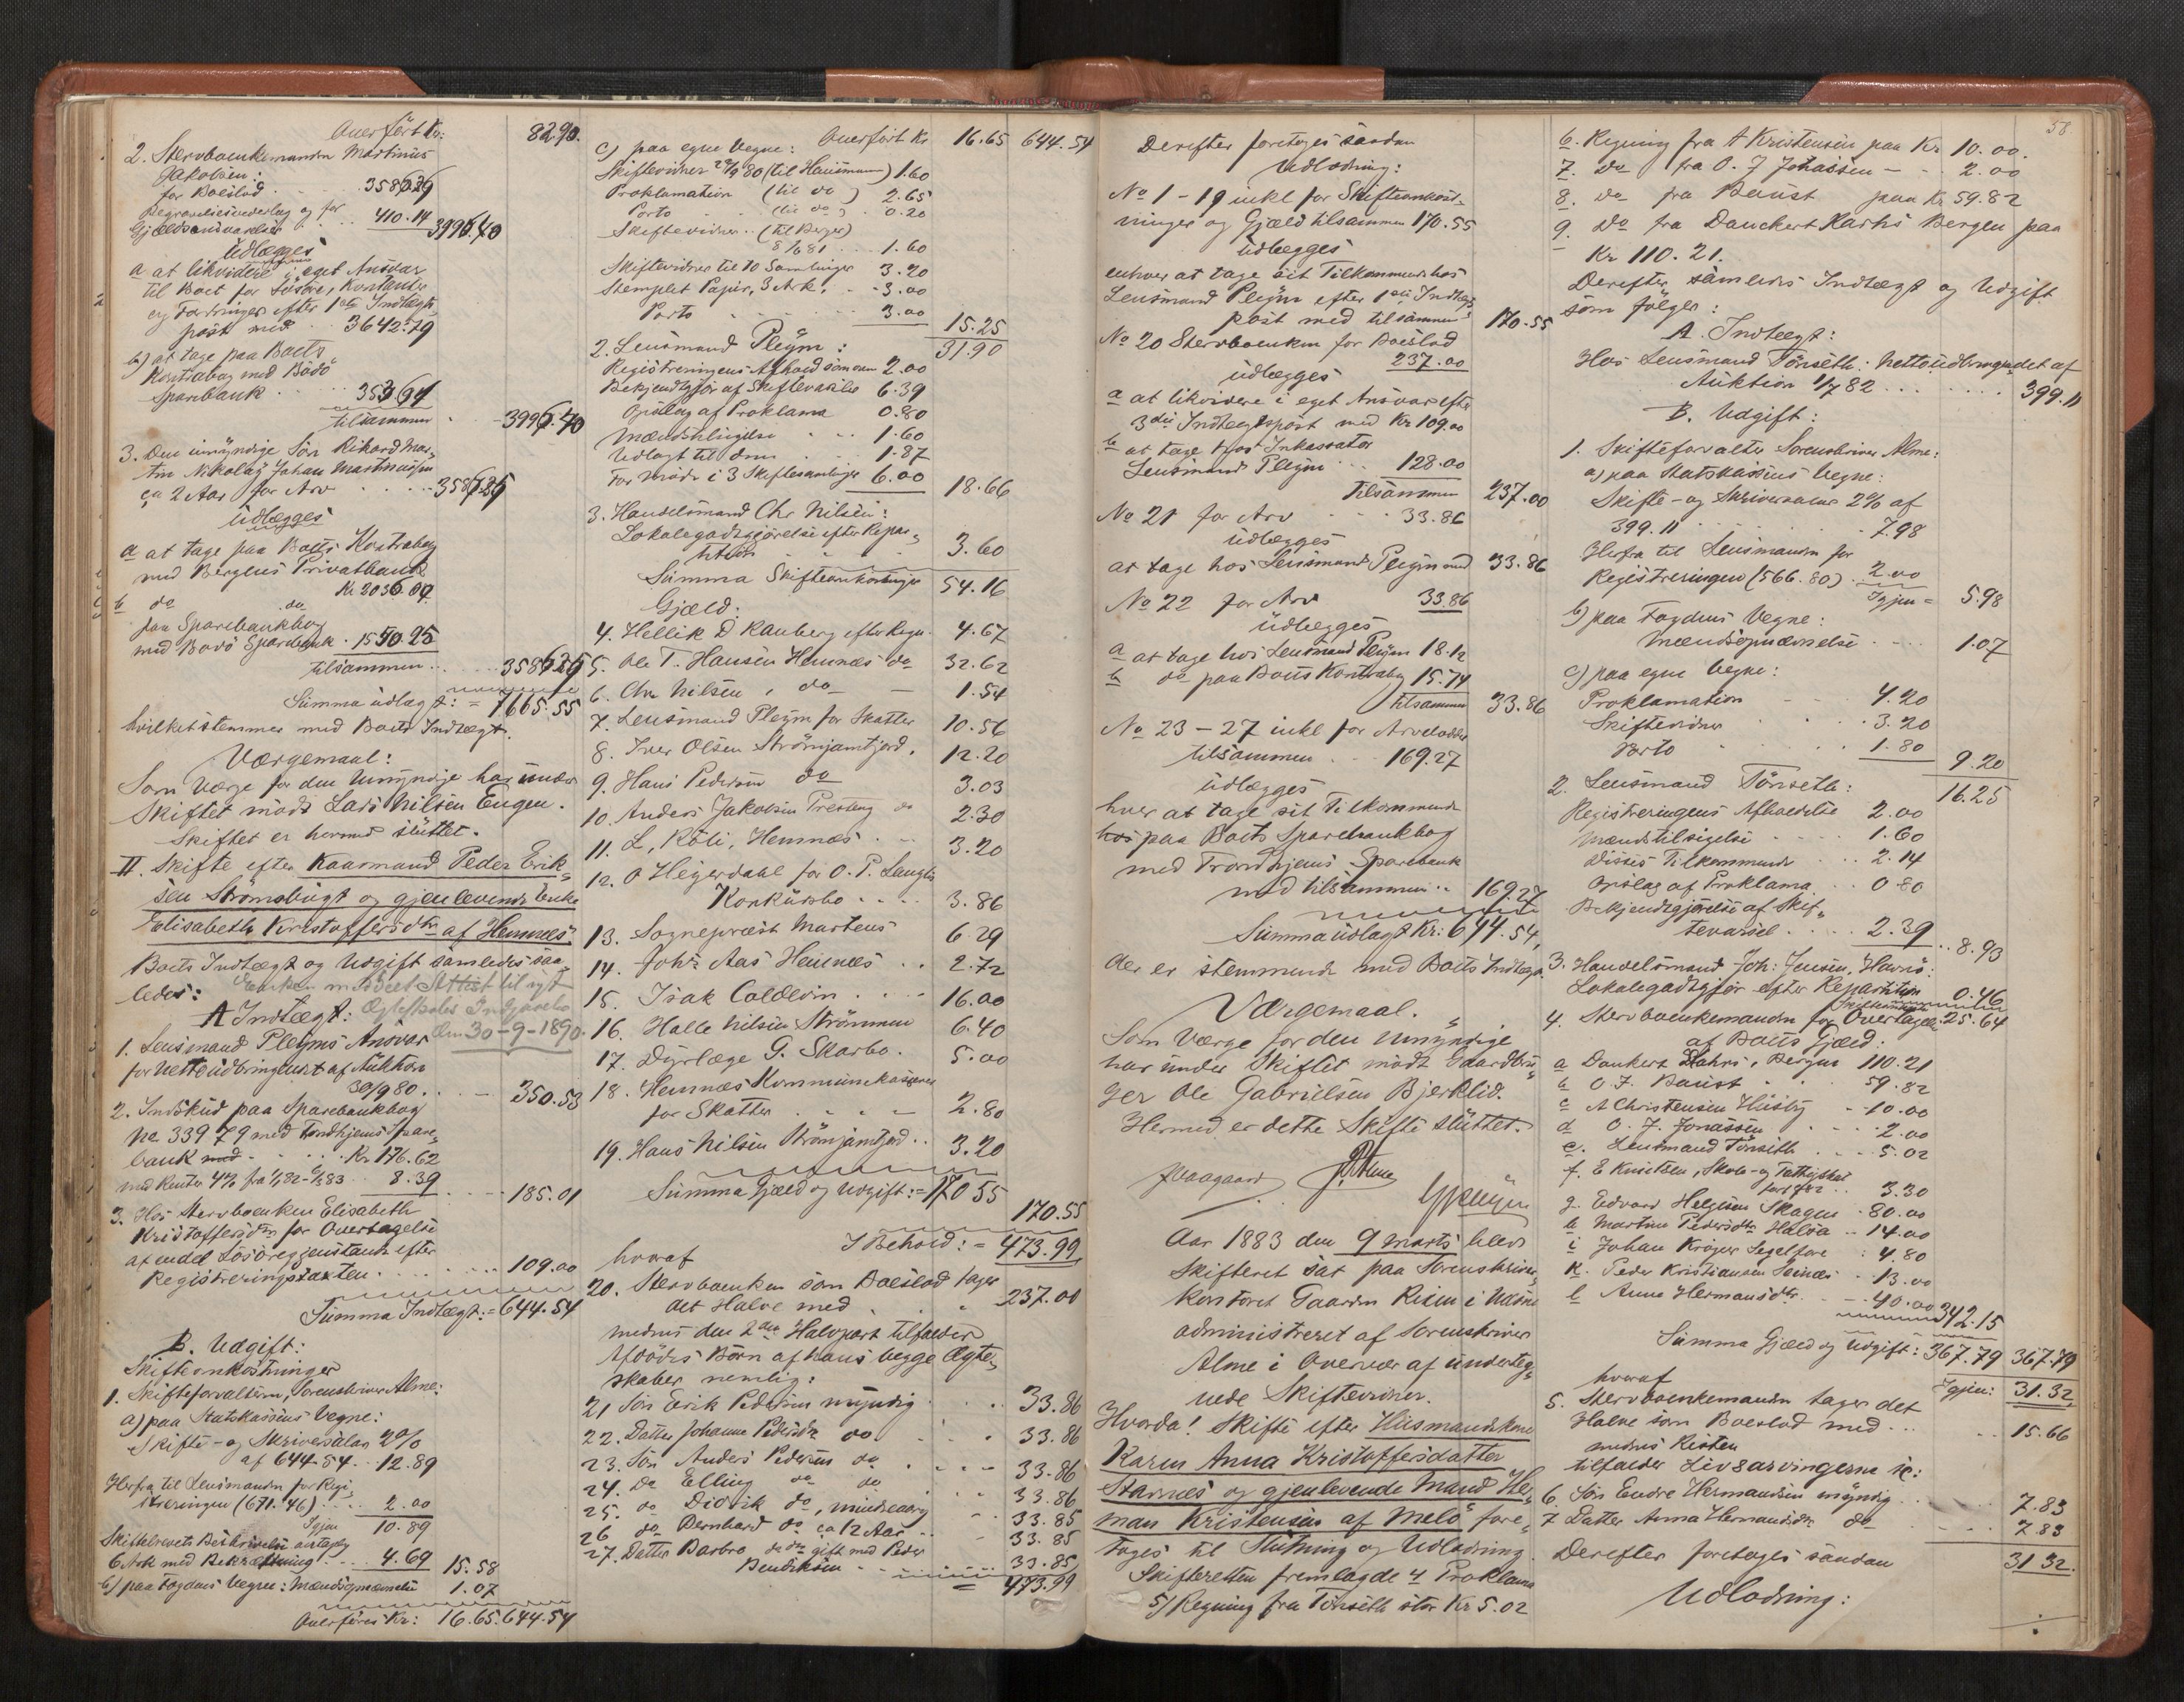 Overført Kr: 82.90.
2. Stervboenkemanden Martinus
Jakobsen:
for Boeslod 3586.26
Begravelsesvederlag og for
Gjældsansvarlig 410.14 3996.40
Udlægges
a at likvidere i eget Ansvar
til Boet for Løsøre, Kontanter
og Fordringer efter 1ste Indtægts
post med 3642.79
b) at tage paa Boets
Kontrabog med Bodø
Sparebank 353.61
tilsammen 3996.40
3. Den umyndige Søn Rikard Mar-
tin Nikolaj Johan Martinussen
ca 2 Aar for Arv 3586.25
Udlægges
a at tage paa Boets Kontrabog
med Bergens Privatbank
Kr 2036.00
b do do
paa Sparebankbog
med Bodø Sparebank 1550.25
tilsammen 3586.25
Summa udlagt: = 7665.55
hvilket stemmer med Boets Indtægt.
Værgemaal:
Som Værge for den Umyndige har under
Skiftet mødt Lars Nilsen Engen.
Skiftet er hermed sluttet.
II. Skifte efter Kaarmand Peder Erik-
sen Strømsbugt og gjenlevende Enke
Elisabeth Kristoffersdtr af Hemnæs.
Boets Indtægt og Udgift samledes saa-
ledes: Enken meddelt Attest til nyt
Ægteskabs Indgaaelse
A Indtægt: den 30-9-1890.
1. Lensmand Pleyms Ansvar
for Nettoudbringendet af Auktion
30/9 80 350.53
2. Indskud paa Sparebankbog
No 33979 med Trondhjems Spare-
bank med Kr 176.62
med Renter 4% fra 1/1 82 - 8/3 83 8.39
185.01
3. Hos Stervboenken Elisabeth
Kristoffersdtr for Overtagelse
af endel Løsøregjenstande efter
Registreringstaxten 109.00
Summa Indtægt: = 644.54
B. Udgift:
Skifteomkostninger
1. Skifteforvalteren, Sorenskriver Alme:
a) paa Statskassens Vegne:
Skifte- og Skriversalær 2%
af 644.54 12.89
Herfra til Lensmanden for Regi-
streringen (671.46) 2.00
Igjen 10.89
Skifterettens Beskrivelse antagelig
6 Ark med Bekræftning 4.69 15.58
b) paa Fogdens Vegne: Mændsopnævnelse 1.07
Overføres Kr: 16.65. 644.54
Overført Kr 16.65 644.54
c) paa egne Vegne:
Skiftevidner 29/9 80 (til Hausmann) 1.60
Proklamation (til do) 2.65
Porto (til do) 0.20
Skiftevidner (til Berger)
8/4 81 1.60
Skiftevidner til 10 Samlinger 3.20
Stemplet Papir, 3 Ark 3.00
Porto 3.00
15.25
2. Lensmand Pleym: 31.90
Registreringens Afhold sammen 2.00
Bekjendtgjør af Skiftevarsler 6.39
Opslag af Proklama 0.80
Mændstilsigelse 1.60
Udlagt til dem 1.87
For Møde i 3 Skiftesamlinger 6.00
18.66
3. Handelsmand Chr Nilsen:
Lokalegodtgjørelse efter Repar-
tition 3.60
Summa Skifteomkostninger 54.16
Gjæld:
4. Hellik D Rauberg efter Regn. 4.67
5. Ole T. Hansen Hemnæs do 32.62
6. Chr Nilsen, do 1.54
7. Lensmand Pleym for Skatter 10.56
8. Iver Olsen Strømjamtjord. 12.20
9. Hans Pedersen do 3.03
10. Anders Jakobsen Presteng do 2.30
11. L, Röli, Hemnæs 3.20
12. O Heyerdahl for O. P. Lenglis
Konkursbo 3.86
13. Sognepræst Martens 6.29
14. Johs Aas Hemnæs 2.72
15. Isak Coldevin 16.00
16. Halle Nilsen Strømmen 6.40
17. Dyrlæge G. Skarbo. 5.00
18. Hemnæs Kommunekasserer
for Skatter 2.80
19. Hans Nilsen Strømjamtjord 3.20
Summa Gjæld og Udgift: = 170.55 170.55
I Behold: = 473.99
hvoraf
20. Stervboenken som Boeslod tager
det Halve med 237.00
medens den 2den Halvpart tilfalder
Afdødes Børn af hans begge Ægte-
skaber nemlig:
21 Søn Erik Pedersen myndig 33.86
22. Datter Johanne Pedersdtr do 33.86
23. Søn Anders Pedersen do 33.86
24. do Elling do do 33.86
25. do Didrik do, mindreaarig 33.85
26 do Bernhard do ca 12 Aar 33.85
27. Datter Barbro do do gift med Peder
Bendiksen 33.85
473.99
Derefter foretoges saadan
Udlodning:
No 1-19 inkl for Skifteomkost-
ninger og Gjæld tilsammen 170.55
udlægges
enhver at tage sit Tilkommende hos
Lensmand Pleym efter 1ste Indtægts
post med tilsammen 170.55
No 20 Stervboenken for Boeslod
237.00
udlægges
a at likvidere i eget Ansvar efter
3die Indtægtspost med Kr 109.00
b at tage hos Inkassator
Lensmand Pleym 128.00
Tilsammen 237.00
No 21 for Arv 33.86
udlægges
at tage hos Lensmand Pleym med 33.86
No 22 for Arv 33.86
udlægges
a at tage hos Lensmand Pleym 18.12
b do paa Boets Kontrabog 15.74
tilsammen 33.86
No 23-27 inkl for Arvelodder
tilsammen 169.27
udlægges
hver at tage sit Tilkommende
hos paa Boets Sparebankbog
med Trondhjems Sparebank
med tilsammen 169.27
Summa udlagt Kr: 644.54,
der er stemmende med Boets Indtægt.
Værgemaal.
Som Værge for den Umyndige
har under Skiftet mødt Gaardbru-
ger Ole Gabrielsen Bjerklid.
Hermed er dette Skifte sluttet.
Haagaard Alme
Pleym
Aar 1883 den 9 Marts blev
Skifteret sat paa Sorenskriver-
kontoret Gaarden Risen i Næsne
administreret af Sorenskriver
Alme i Overvær af underteg-
nede Skiftevidner.
Hvorda! Skifte efter Husmandskone
Karen Anna Kristoffersdatter
Starnes og gjenlevende Mand Her-
man Kristensen af Melø fore-
toges til Slutning og Udlodning.
Skifteretten fremlagde 4 Proklama
5) Regning fra Tønseth stor Kr 5.02
58.
6. Regning fra A Kristensen paa Kr 10.00.
7. Do fra O. J Johassen - - 2.00
8. Do fra Baust paa Kr 59.82
9. Do fra Danckert Krohs Bergen paa
Kr 110.21.
Derefter samledes Indtægt og Udgift
som følger:
A. Indtægt:
Hos Lensmand Tönseth: Nettoudbringendet af
Auktion 1/7 82 399.11
B. Udgift:
1. Skifteforvalter Sorenskriver Alme:
a) paa Statskassens Vegne:
Skifte- og Skriversalær 2% af
399.11 7.98
Herfra til Lensmanden for
Registreringen (566.80) 2.00
Igjen = 5.98
b) paa Fogdens Vegne:
Mændsopnævnelse 1.07
c) paa egne Vegne:
Proklamation 4.20
Skiftevidner 3.20
Porto 1.80
9.20
2. Lensmand Tönseth: 16.25
Registreringens Afholdelse 2.00
Mændstilsigelse 1.60
Disses Tilkommende 2.14
Opslag af Proklama 0.80
Bekjendtgjørelse af Skif-
tevarsel 2.39
8.93
3. Handelsmand Joh: Jensen, Havnø:
Lokalegodtgjør efter Repartition 0.46
Skifteomkostninger 25.64
4. Stervboenkemanden for Overtagelse
af Boets Gjæld:
a Dankert Krohs, Bergen 110.21
b O J. Baust 59.82
c A Christensen Husby 10.00
d O. J. Jonassen 2.00
e. Lensmand Tönseth 5.02
f. E Knutsen, Skole- og Fattigskat
3.30
g. Edvard Helgesen Skagen 80.00
h Martine Pedersdtr Halsa 14.00
i Johan Krøger Segelfore 4.80
k. Peder Kristiansen 13.00
l Anne Hermansdtr 40.00
342.15
Summa Gjæld og Udgift: 367.79 367.79
hvoraf Igjen: 31.32
5. Stervboenkemanden tager det
Halve som Boeslod med 15.66
medens Resten
tilfalder Livsarvingerne ic:
6. Søn Endre Hermansen myndig 7.83
7 Datter Anna Hermansdtr do 7.83
31.32.
Derefter foretoges saadan
Udlodning: